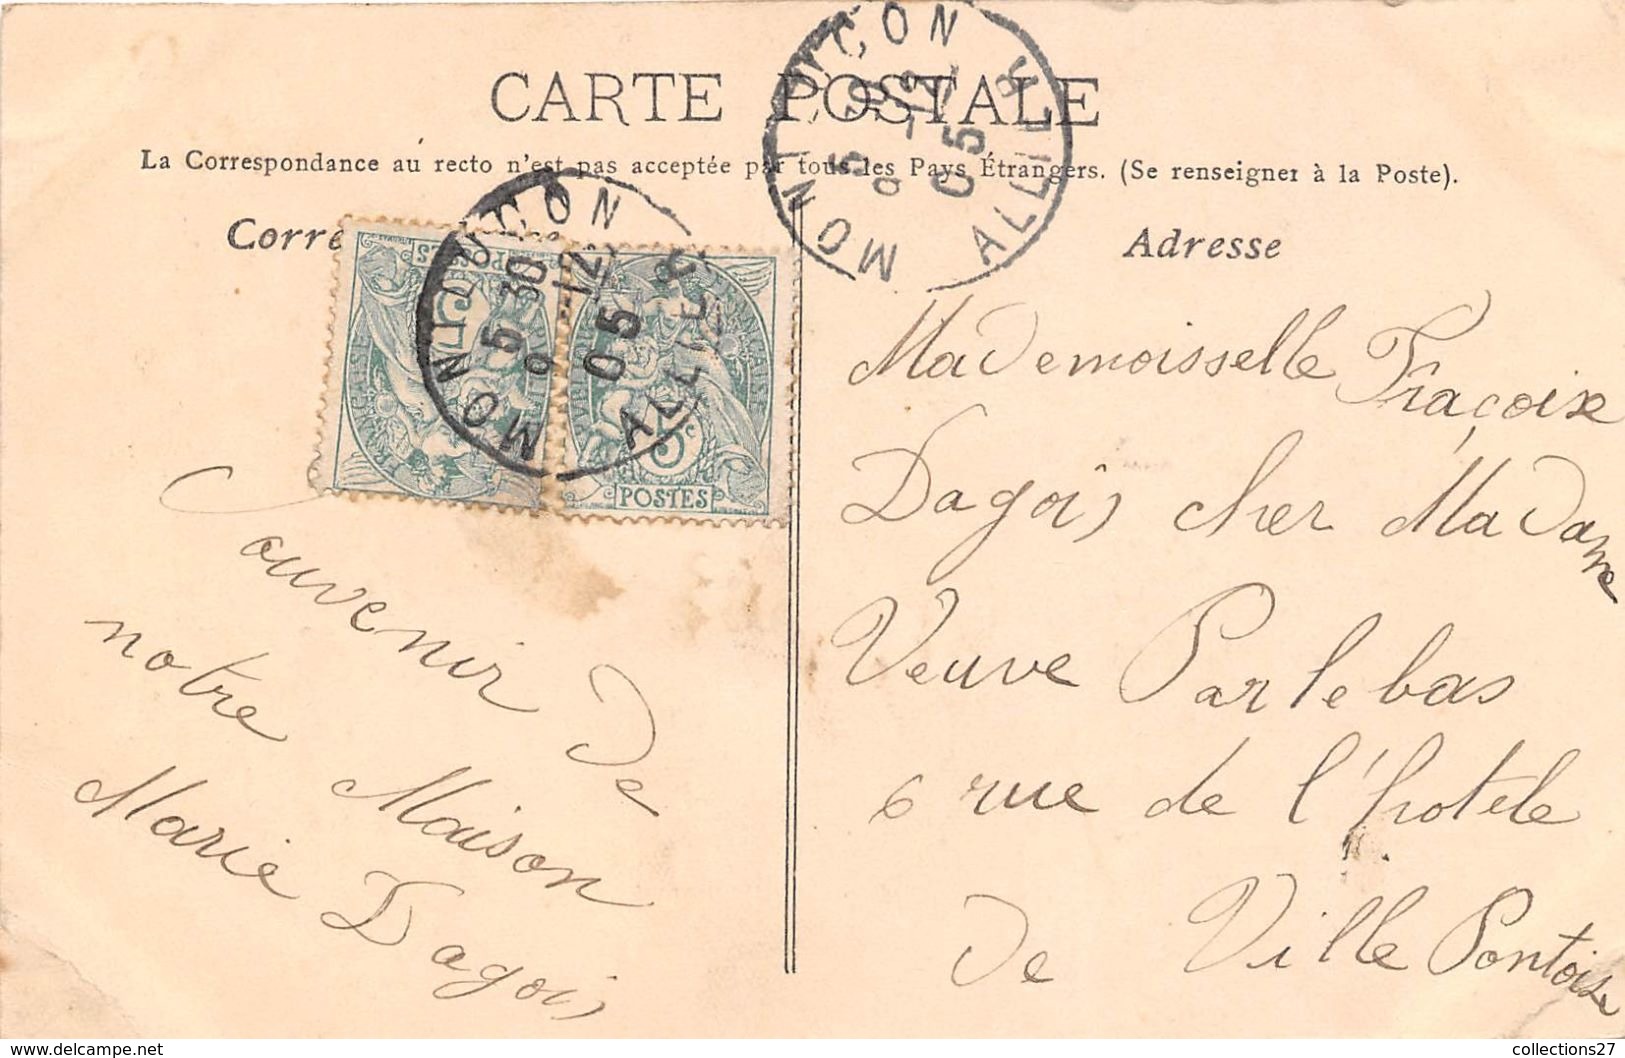 CARTE POSTALE
La Correspondance au recto n'est pas acceptée par tous les Pays Étrangers. (Se renseigner à la Poste).
Corre
Adresse
MONTLUÇON
5 30
9 -12
05
ALLIER
MONTLUÇON
5 30
9 -12
05
ALLIER
POSTES
FRANÇAISE
5
RÉPUBLIQUE FRANÇAISE
5c
POSTES
Souvenir de
notre Maison
Marie Dagois
Mademoisselle Fraçoise
Dagois cher Madame
Veuve Parlebas
6 rue de l'hotele
de Ville Pontoise
delcampe.net
collections27